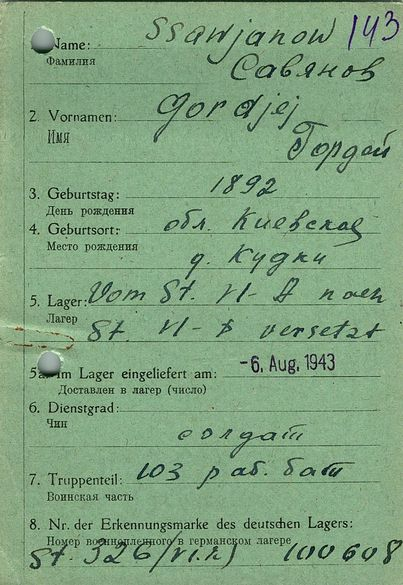 143
Name: Ssawjanow
Фамилия Савянов
2. Vornamen: Gordjej
Имя Гордей
3. Geburtstag: 1892
День рождения
4. Geburtsort: обл. Киевская
Место рождения д. Кудки
5. Lager: Vom St. VI-A nach
Лагер St. VI- versetzt
5a. Im Lager eingeliefert am: -6. Aug. 1943
Доставлен в лагер (число)
6. Dienstgrad:
Чин солдат
7. Truppenteil: 103 раб. бат
Воинская часть
8. Nr. der Erkennungsmarke des deutschen Lagers:
Номер военнопленного в германском лагере
St. 326 (VI.K) 100608